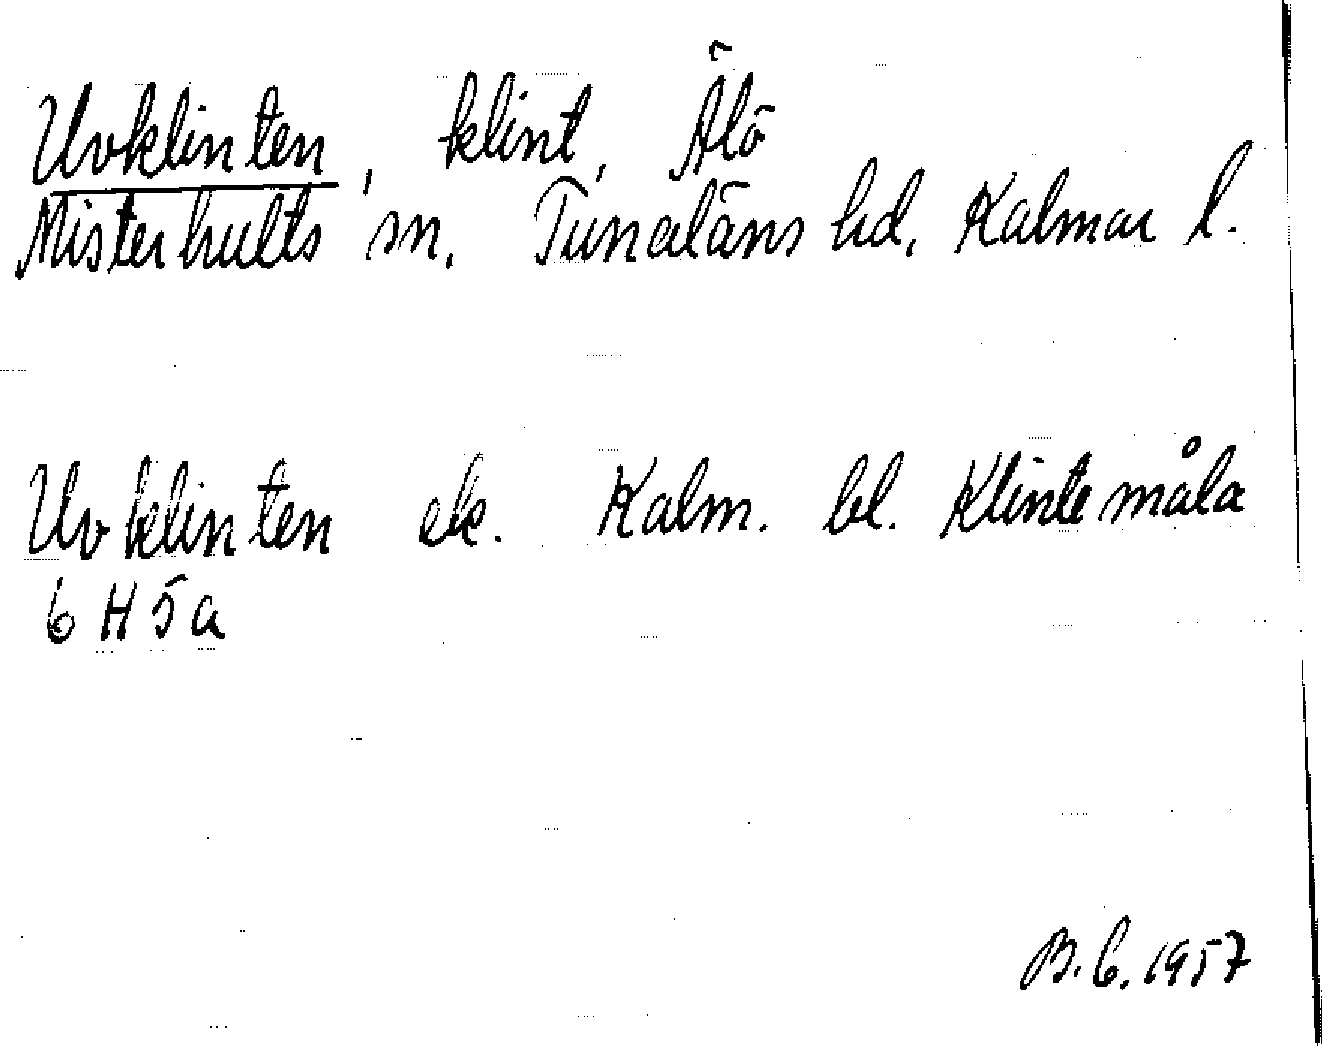 Uvklinten, klint, Älö
Misterhults sn. Tunaläns hd. Kalmar l.
Uvklinten ek. Kalm. bl. Klintemåla
6 H 5 a
B. C. 1957